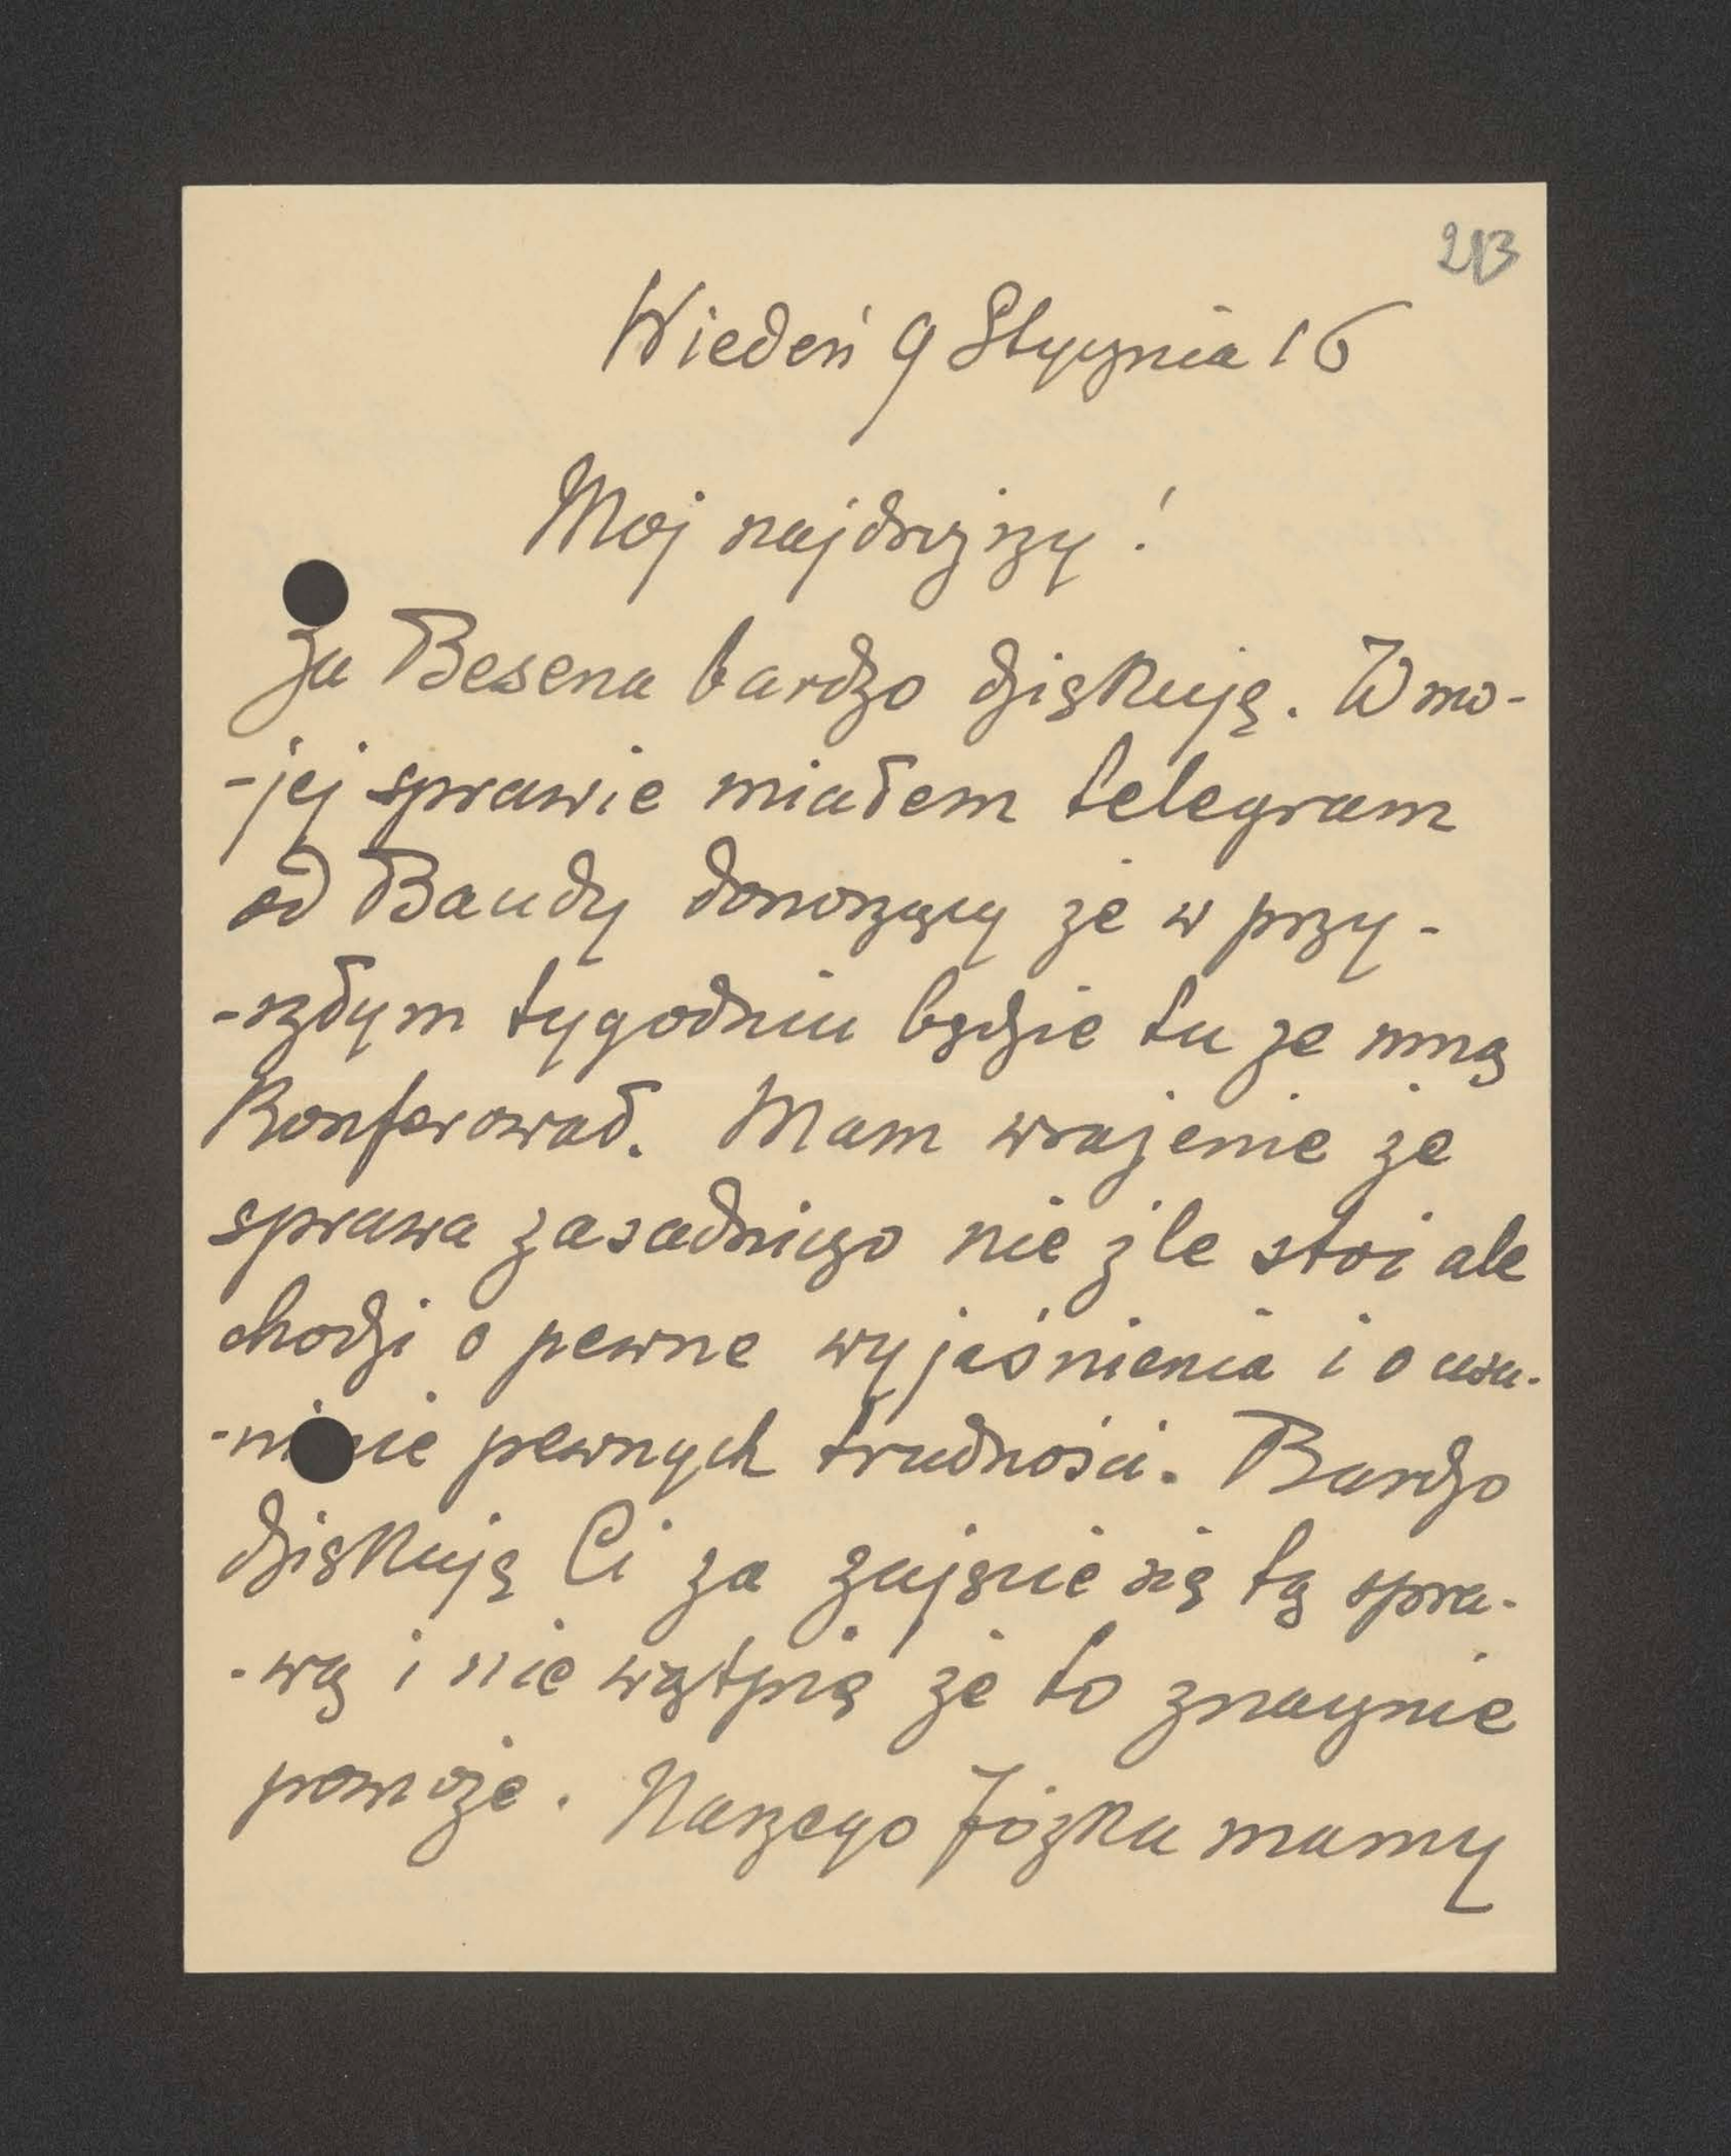 213
Wiedeń 9 Stycznia 16
Moj najdroższy!
Za Besena bardzo dziękuję. W mo-
-jej sprawie miałem telegram
od Baudy donoszący że w przy-
-szłym tygodniu będzie tu ze mną
konferował. Mam wrażenie że
sprawa zasadniczo nie źle stoi ale
chodzi o pewne wyjaśnienia i o usu-
-nięcie pewnych trudności. Bardzo
dziękuję Ci za zajęcie się tą spra-
-wą i nie wątpię że to znacznie
pomoże. Naszego Józka mamy